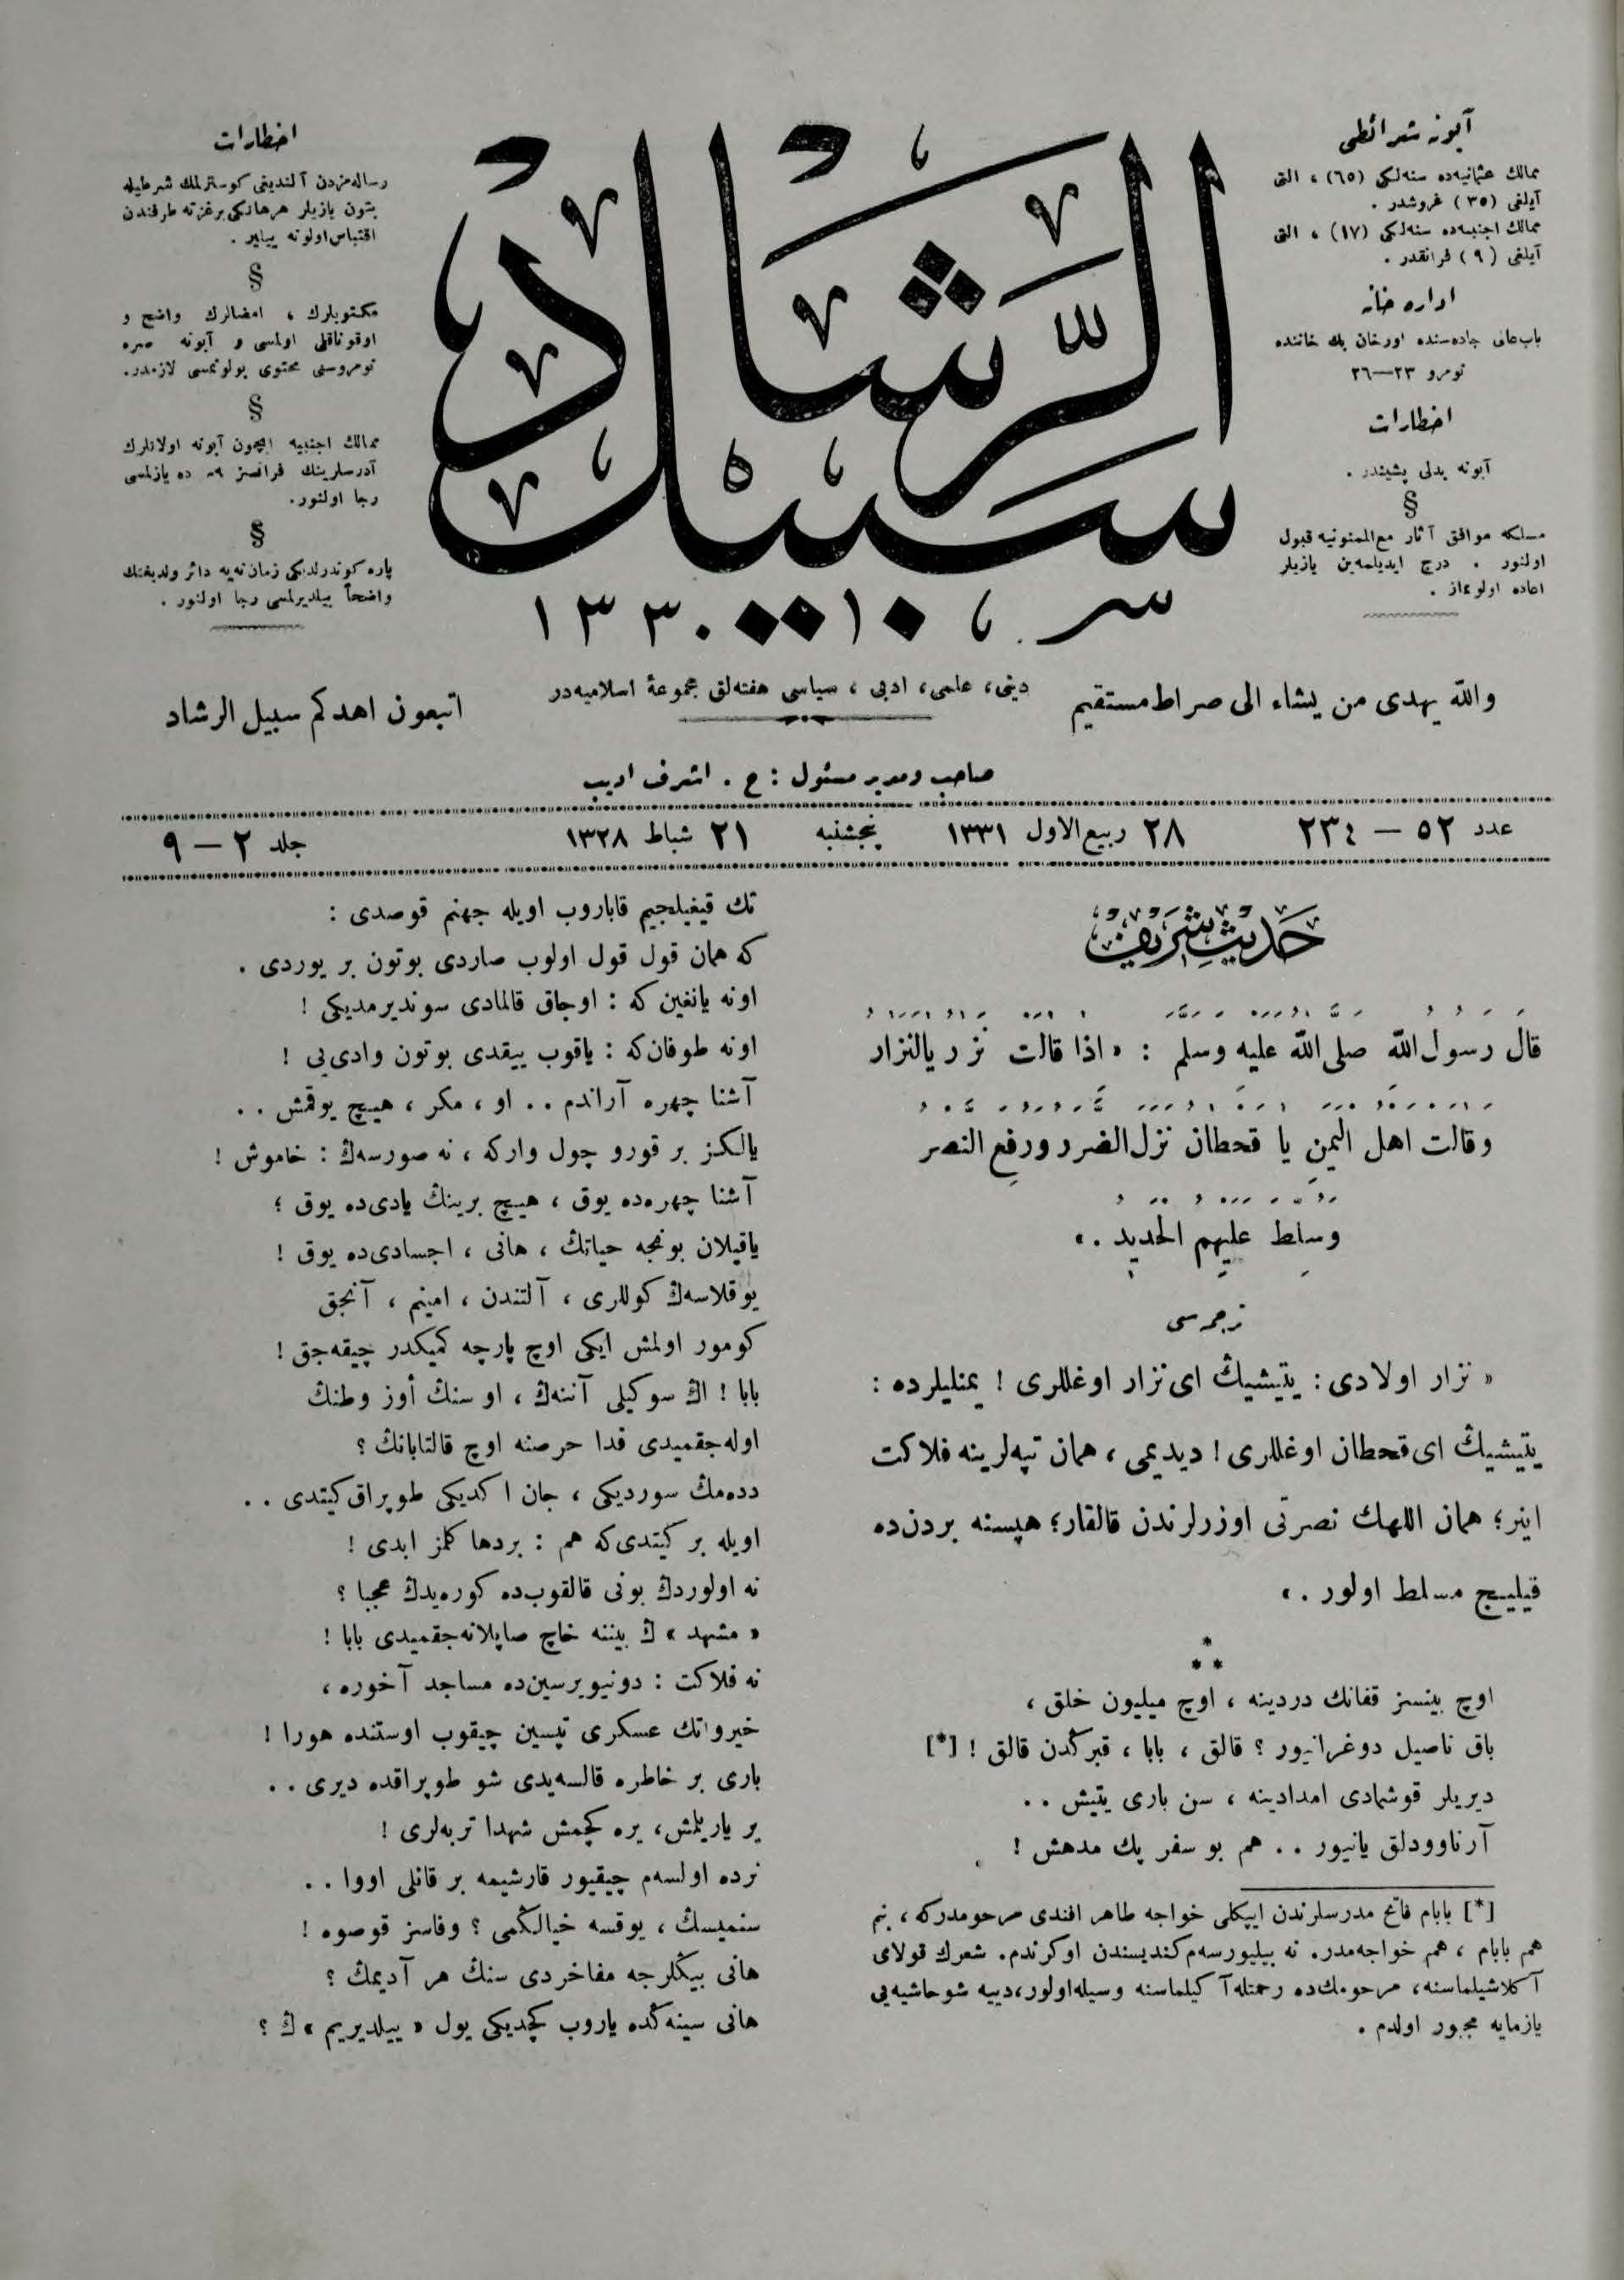 آبونه شرائطی
ممالك عثمانیه‌ده سنه‌لكی (٦٥) ، التی
آیلغی (٣٥) غروشدر .
ممالك اجنبیه‌ده سنه‌لكی (١٧) ، التی
آیلغی (٩) فرانقدر .
اداره خانه
باب عالی جاده‌سنده اورخان بك خاننده
نومرو ٢٣—٢٦
اخطارات
آبونه بدلی پشیندر .
§
مسلكه موافق آثار مع‌الممنونیه قبول
اولنور . درج ایدیلمه‌ین یازیلر
اعاده اولونماز .
اخطارات
رساله‌مزدن آلندیغی كوسترلمك شرطیله
بتون یازیلر هرهانكی برغزته طرفندن
اقتباس اولونه بیلیر .
§
مكتوبلرك ، امضالرك واضح و
اوقوناقلی اولمسی و آبونه صره
نومروسنی محتوی بولونمسی لازمدر.
§
ممالك اجنبیه ایچون آبونه اولانلرك
آدرسلرینك فرانسزجه ده یازلمسی
رجا اولنور.
§
پاره كوندرلدیكی زمان نه‌یه دائر ولدیغنك
واضحاً بیلدیرلمسی رجا اولنور .
سبیل الرشاد
١٣٣٠
والله یهدی من یشاء الی صراط مستقیم
دینی، علمی، ادبی ، سیاسی هفته‌لق مجموعهٔ اسلامیه‌در
اتبعون اهدكم سبیل الرشاد
صاحب ومدیر مسئول : ح . اشرف ادیب
عدد ٥٢ — ٢٣٤
٢٨ ربیع الاول ١٣٣١
پنجشنبه
٢١ شباط ١٣٢٨
جلد ٢ — ٩
حدیث شریف
قال رسول الله صلی الله علیه وسلم : « اذا قالت نزر یالنزار
وقالت اهل الیمن یا قحطان نزل الضرر ورفع النصر
وسلط علیهم الحدید . »
ترجمه سی
« نزار اولادی : یتیشیڭ ای نزار اوغللری ! یمنلیلرده :
یتیشیڭ ای قحطان اوغللری ! دیدیمی ، همان تپه‌لرینه فلاكت
اینر؛ همان اللهك نصرتی اوزرلرندن قالقار؛ هپسنه بردن‌ده
قیلیج مسلط اولور . »
* * *
اوچ بینسز قفانك دردینه ، اوچ میلیون خلق ،
باق ناصیل دوغرانیور ؟ قالق ، بابا ، قبركدن قالق ! [*]
دیریلر قوشمادی امدادینه ، سن باری یتیش . .
آرناوودلق یانیور . . هم بو سفر پك مدهش !
[*] بابام فاتح مدرسلرندن ایپكلی خواجه طاهر افندی مرحومدركه ، بنم
هم بابام ، هم خواجه‌مدر. نه بیلیورسه‌م كندیسندن اوكرندم. شعرك قولای
آكلاشیلماسنه، مرحومك‌ده رحمتله آكیلماسنه وسیله اولور، دییه شو حاشیه‌یی
یازمایه مجبور اولدم .
تك قیغیلجیم قاباروب اویله جهنم قوصدی :
كه همان قول قول اولوب صاردی بوتون بر یوردی .
اونه یانغین كه : اوجاق قالمادی سوندیرمدیكی !
اونه طوفان كه : یاقوب ییقدی بوتون وادی‌یی !
آشنا چهره آراندم . . او ، مكر ، هیچ یوقمش . .
یالكز بر قورو چول واركه ، نه صورسه‌ڭ : خاموش !
آشنا چهره‌ده یوق ، هیچ برینڭ یادی‌ده یوق ؛
یاقیلان بونجه حیاتڭ ، هانی ، اجسادی‌ده یوق !
یوقلاسه‌ڭ كوللری ، آلتندن ، امینم ، آنجق
كومور اولمش ایكی اوچ پارچه كمیكدر چیقه‌جق !
بابا ! اڭ سوكیلی آننه‌ڭ ، او سنڭ أوز وطنڭ
اوله‌جقمیدی فدا حرصنه اوچ قالتابانڭ ؟
دده‌مڭ سوردیكی ، جان اكدیكی طوپراق كیتدی . .
اویله بر كیتدی كه هم : بردها كلمز ابدی !
نه اولوردڭ بونی قالقوب‌ده كوره‌یدڭ عجبا ؟
« مشهد » ڭ بیننه خاچ صاپلانه‌جقمیدی بابا !
نه فلاكت : دونیویرسین‌ده مساجد آخوره ،
خیرواتك عسكری تپسین چیقوب اوستنده هورا !
باری بر خاطره قالسه‌یدی شو طوپراقده دیری . .
یر یاریلمش، یره كچمش شهدا تربه‌لری !
نرده اولسه‌م چیقیور قارشیمه بر قانلی اووا . .
سنمیسڭ ، یوقسه خیالڭمی ؟ وفاسز قوصوه !
هانی بیڭلرجه مفاخردی سنڭ هر آدیمڭ ؟
هانی سینه‌ڭده یاروب كچدیكی یول « ییلدیریم » ڭ ؟